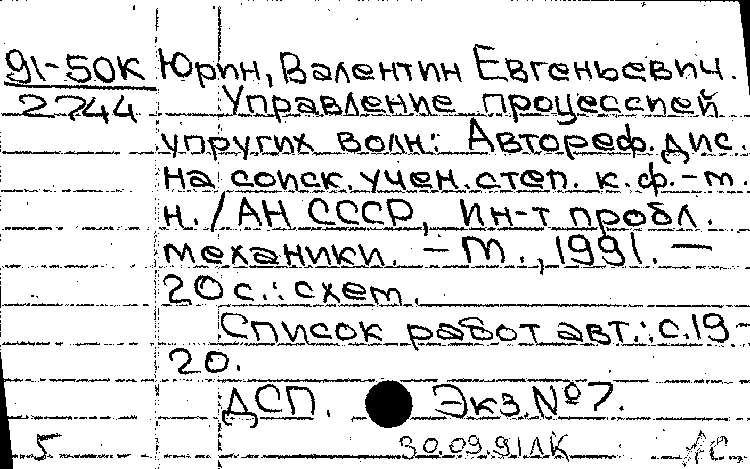 91-50К Юрин, Валентин Евгеньевич.
2744 Управление процессией
упругих волн: Автореф. дис.
на соиск. учен. степ. к.ф.-т.
н. / АН СССР, Ин-т пробл.
механики. - т., 1991. —
20 с.: схем.
Список работ авт.: с. 19-
20.
ДСП. Экз. № 7.
5 30.09.91 ЛК АС